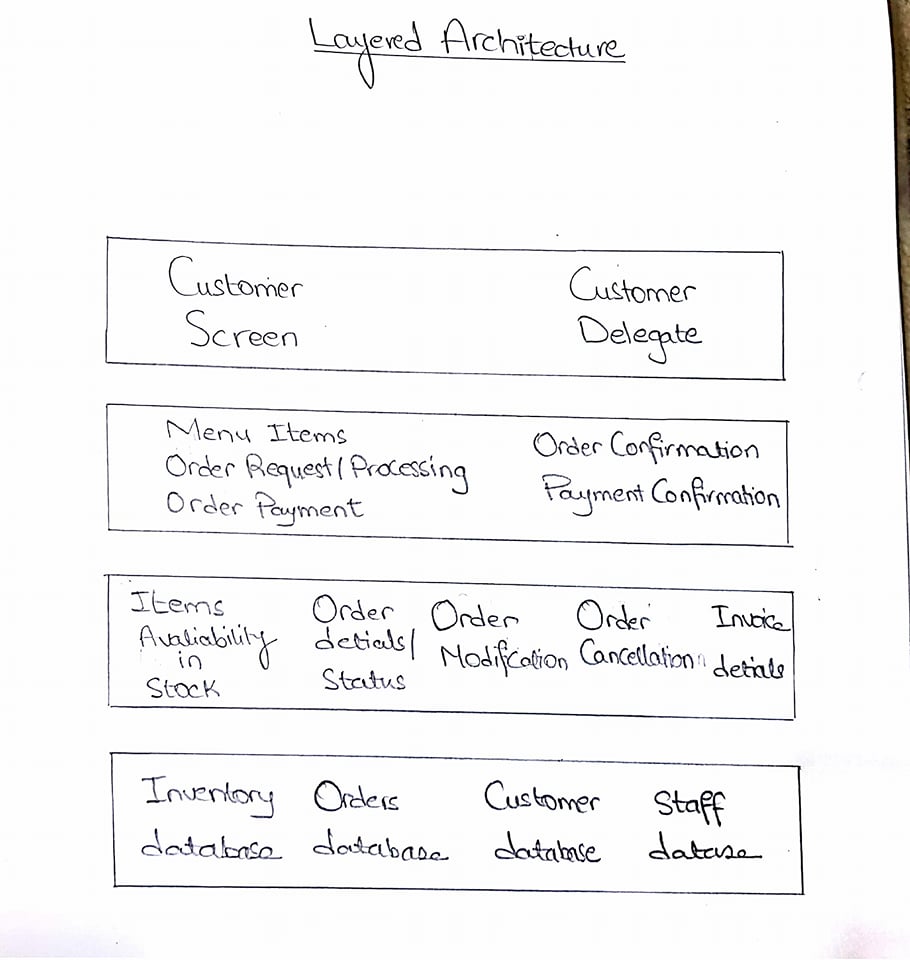 Layered Architecture
Customer
Screen
Customer
Delegate
Menu Items
Order Request/Processing
Order Payment
Order Confirmation
Payment Confirmation
Items
Avaliability
in
Stock
Order
detials/
Status
Order
Modification
Order
Cancellation
Invoice
detials
Inventory
database
Orders
database
Customer
database
Staff
datase